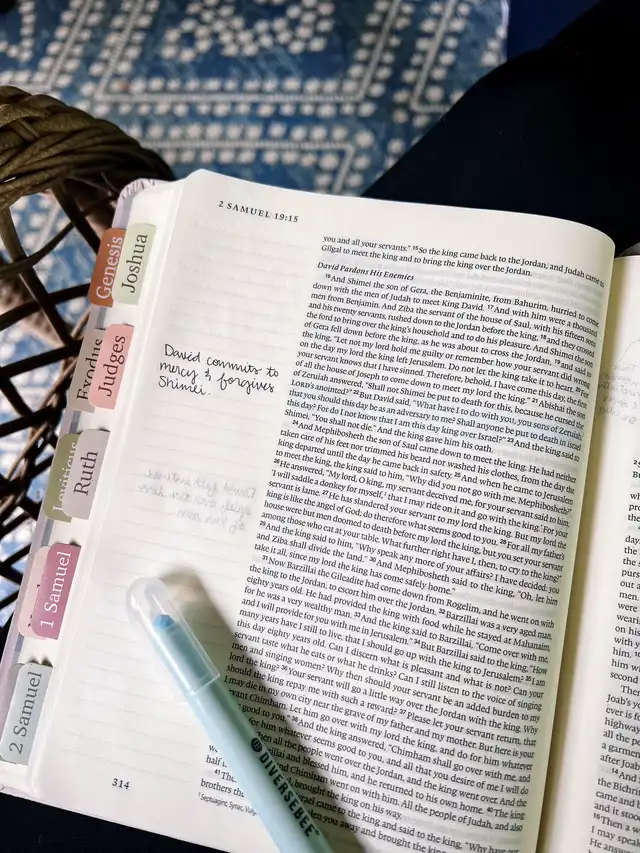 2 SAMUEL 19:15
you and all your servants." 15So the king came back to the Jordan, and Judah came to
Gilgal to meet the king and to bring the king over the Jordan.
David Pardons His Enemies
16And Shimei the son of Gera, the Benjaminite, from Bahurim, hurried to come
down with the men of Judah to meet King David. 17And with him were a thousand
men from Benjamin. And Ziba the servant of the house of Saul, with his fifteen sons
and his twenty servants, rushed down to the Jordan before the king, 18and they crossed
the ford to bring over the king's household and to do his pleasure. And Shimei the son
of Gera fell down before the king, as he was about to cross the Jordan, 19and said to
the king, "Let not my lord hold me guilty or remember how your servant did wrong
on the day my lord the king left Jerusalem. Do not let the king take it to heart. 20For
your servant knows that I have sinned. Therefore, behold, I have come this day, the first
of all the house of Joseph to come down to meet my lord the king." 21Abishai the son
of Zeruiah answered, "Shall not Shimei be put to death for this, because he cursed the
LORD's anointed?" 22But David said, "What have I to do with you, you sons of Zeruiah,
that you should this day be as an adversary to me? Shall anyone be put to death in Israel
this day? For do I not know that I am this day king over Israel?" 23And the king said to
Shimei, "You shall not die." And the king gave him his oath.
24And Mephibosheth the son of Saul came down to meet the king. He had neither
taken care of his feet nor trimmed his beard nor washed his clothes, from the day the
king departed until the day he came back in safety. 25And when he came to Jerusalem
to meet the king, the king said to him, "Why did you not go with me, Mephibosheth?"
26He answered, "My lord, O king, my servant deceived me, for your servant said to him,
'I will saddle a donkey for myself, that I may ride on it and go with the king.' For your
servant is lame. 27He has slandered your servant to my lord the king. But my lord the
king is like the angel of God; do therefore what seems good to you. 28For all my father's
house were but men doomed to death before my lord the king, but you set your servant
among those who eat at your table. What further right have I, then, to cry to the king?"
29And the king said to him, "Why speak any more of your affairs? I have decided: you
and Ziba shall divide the land." 30And Mephibosheth said to the king, "Oh, let him
take it all, since my lord the king has come safely home."
31Now Barzillai the Gileadite had come down from Rogelim, and he went on with
the king to the Jordan, to escort him over the Jordan. 32Barzillai was a very aged man,
eighty years old. He had provided the king with food while he stayed at Mahanaim,
for he was a very wealthy man. 33And the king said to Barzillai, "Come over with me,
and I will provide for you with me in Jerusalem." 34But Barzillai said to the king, "How
many years have I still to live, that I should go up with the king to Jerusalem? 35I am
this day eighty years old. Can I discern what is pleasant and what is not? Can your
servant taste what he eats or what he drinks? Can I still listen to the voice of singing
men and singing women? Why then should your servant be an added burden to my
lord the king? 36Your servant will go a little way over the Jordan with the king. Why
should the king repay me with such a reward? 37Please let your servant return, that
I may die in my own city near the grave of my father and my mother. But here is your
vant Chimham. Let him go over with my lord the king, and do for him whatever
good to you." 38And the king answered, "Chimham shall go over with me, and
for him whatever seems good to you, and all that you desire of me I will do
hen all the people went over the Jordan, and the king went over. And the
zillai and blessed him, and he returned to his own home. 40The king
and Chimham went on with him. All the people of Judah, and also
half
el, brought the king on his way.
41The
rael came to the king and said to the king, "Why have our
brothers the
David commits to
mercy & forgives
Shimei.
Genesis
Joshua
Exodus
Judges
Leviticus
Ruth
1 Samuel
2 Samuel
314
DIVERSEBEE